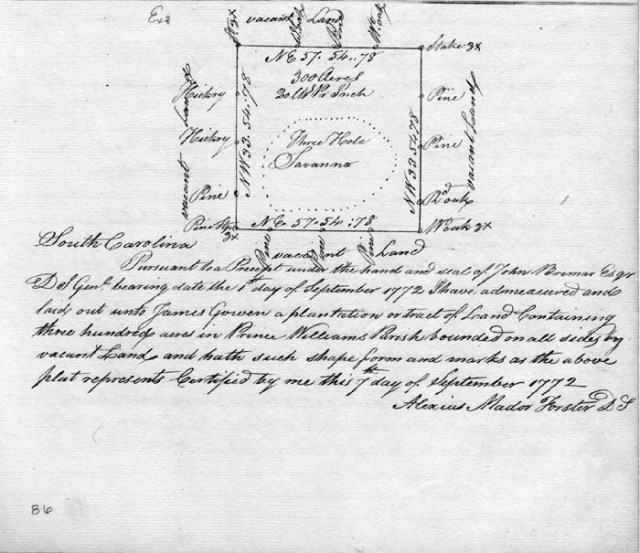 Exd
vacant Land
St 3x
Pine
Wt oak
NE 57. 54..78
Stake 3x
300 Acres
20 Ch Pr Inch
Hickry
Pine
vacant Land
NW 33. 54..78
NW 33 54 78
vacant Land
Hickry
Three Hole
Pine
Savanna
Pine
Rd oak
3x
NE 57. 54..78
W oak 3x
Pine
Pine
Pine
vacant Land
South Carolina
Pursuant to a Precept under the hand and seal of John Bremar Esqr
D S Genl. bearing date the 1st day of September 1772 I have admeasured and
laid out unto James Gowen a plantation or tract of Land Containing
three hundred acres in Prince Williams Parish bounded on all sides by
vacant Land and hath such shape form and marks as the above
plat represents Certified by me this 7th day of September 1772
Alexius Mador Forster D S
86